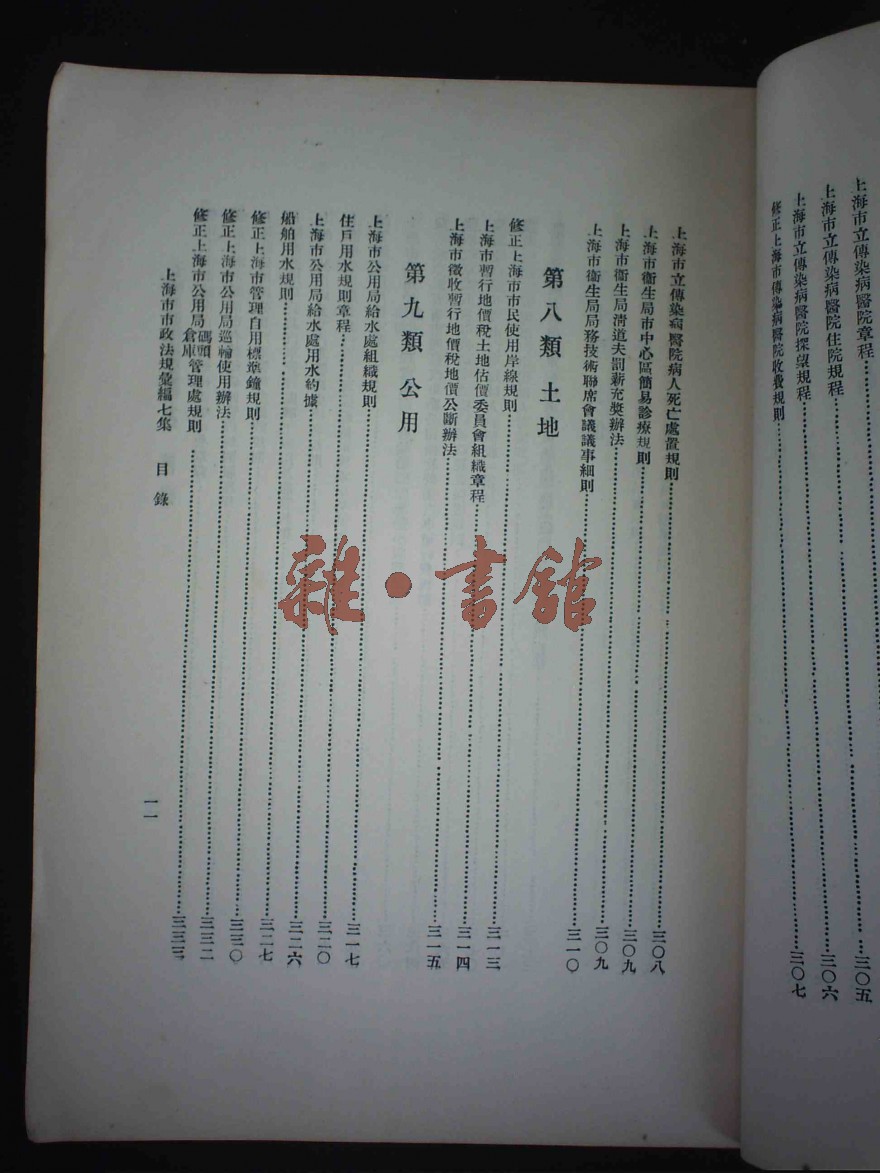 上海市立傳染病醫院章程……三〇五
上海市立傳染病醫院住院規程……三〇六
上海市立傳染病醫院探望規程……三〇七
修正上海市傳染病醫院收費規則……
上海市立傳染病醫院病人死亡處置規則……三〇八
上海市衞生局市中心區簡易診療規則……三〇九
上海市衞生局清道夫罰薪充奬辦法……三〇九
上海市衞生局局務技術聯席會議議事細則……三一〇
第八類 土地
修正上海市市民使用岸線規則……三一三
上海市暫行地價稅土地估價委員會組織章程……三一四
上海市徵收暫行地價稅地價公斷辦法……三一五
第九類 公用
上海市公用局給水處組織規則……三一七
住戶用水規則章程……三二〇
上海市公用局給水處用水約據……三二六
船舶用水規則……三二七
修正上海市管理自用標準鐘規則……三三〇
修正上海市公用局巡輪使用辦法……三三二
修正上海市公用局碼頭倉庫管理處規則……三三三
上海市市政法規彙編七集 目錄
一一
雜·書館